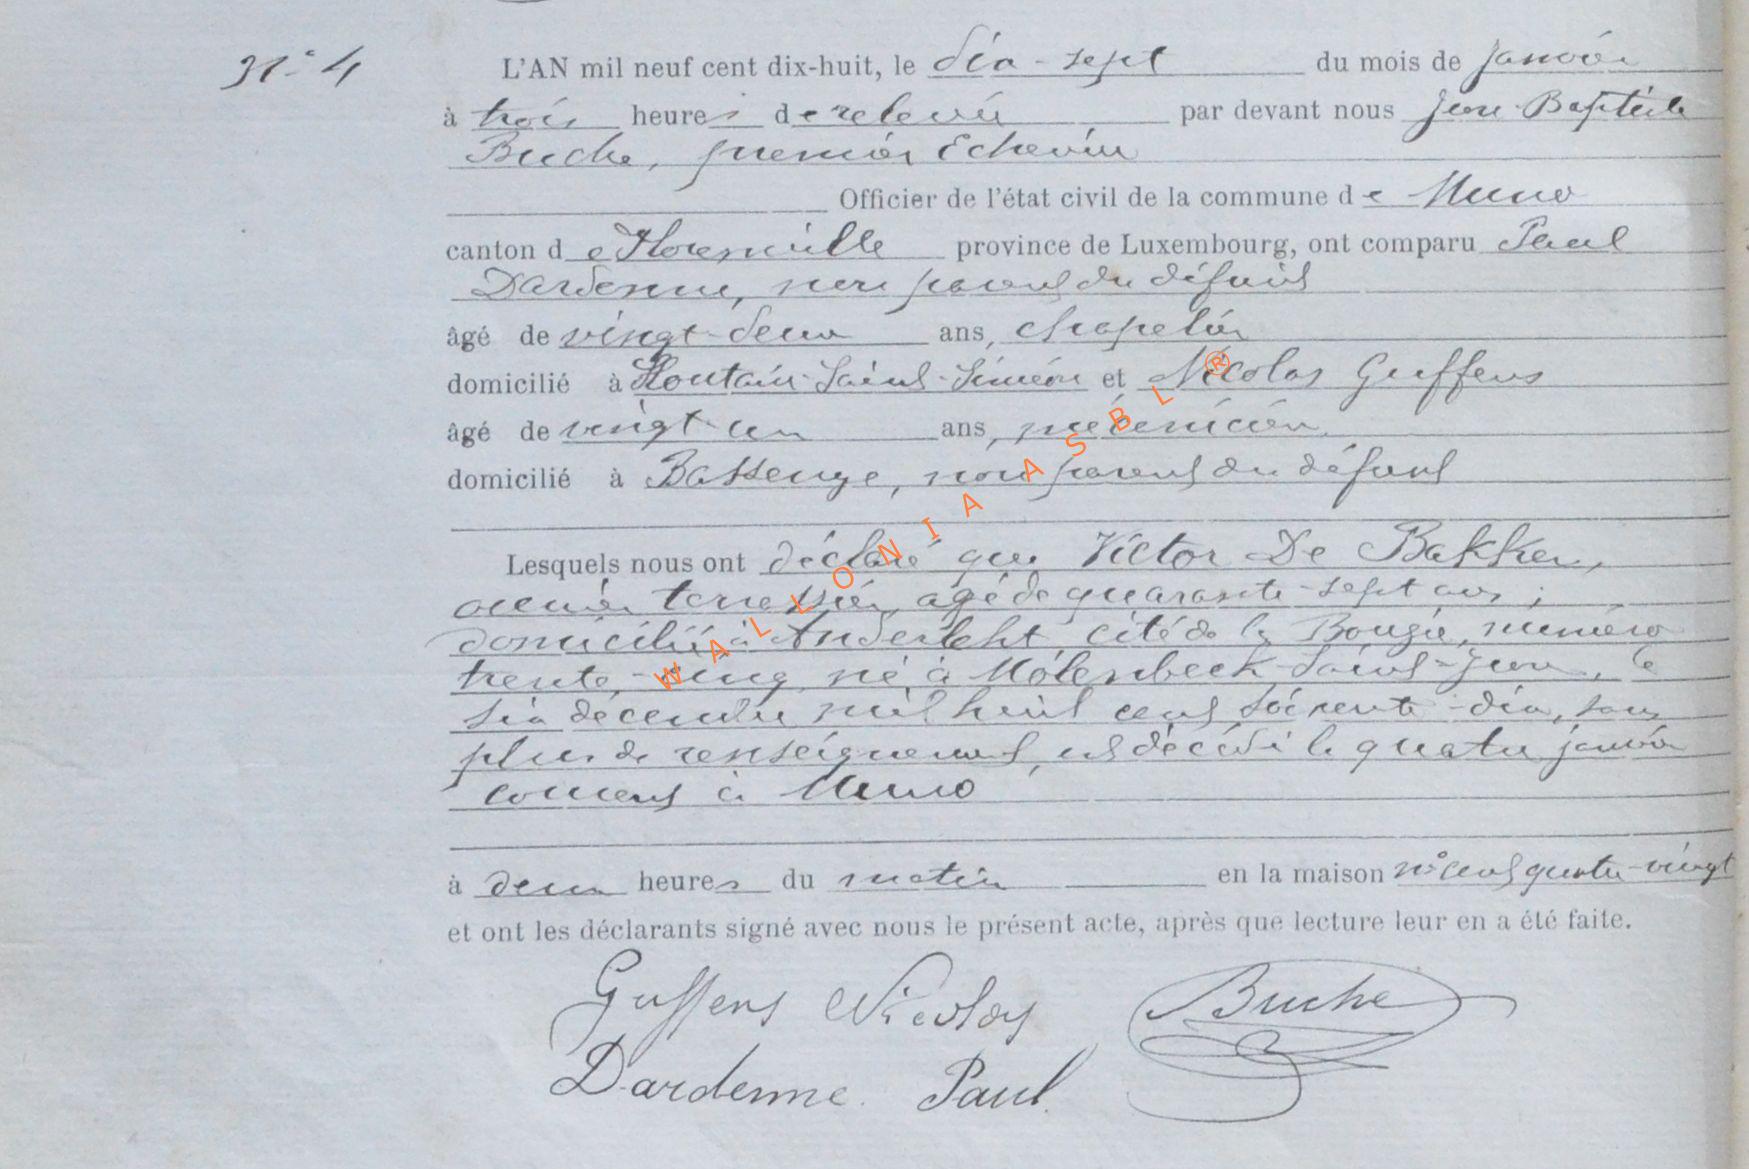 N° 4
L'AN mil neuf cent dix-huit, le dix-sept du mois de janvier
à trois heures de relevée par devant nous Jean-Baptiste
Buche, premier Echevin
Officier de l'état civil de la commune de Muno
canton de Florenville province de Luxembourg, ont comparu Paul
Dardenne, non parent du défunt
âgé de vingt-deux ans, chapelier
domicilié à Houtain-Saint-Siméon et Nicolas Guffens
âgé de vingt-un ans,
domicilié à Bassenge, non parent du défunt
Lesquels nous ont déclaré que Victor De Bakker,
ouvrier terrassier, âgé de quarante-sept ans,
domicilié à Anderleht, cité de la Bougie, numéro
trente-cinq, né à Molenbeek-Saint-Jean, le
six décembre mil huit cent soixante-dix, sans
plus de renseignement, est décédé le quatre janvier
courant à Muno
à deux heures du matin en la maison n° cent quatre-vingt
et ont les déclarants signé avec nous le présent acte, après que lecture leur en a été faite.
Guffens Nicolas Buche
Dardenne Paul.
WALLONIA ASBL ®